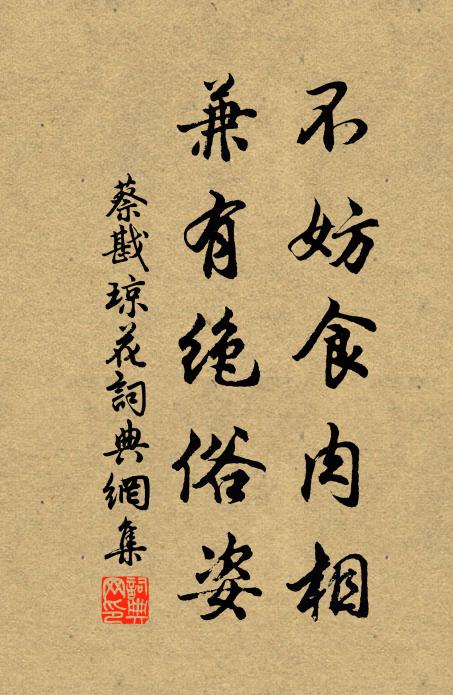 不妨食肉相
兼有绝俗姿
蔡戡琼花詞典網集
詞典网印